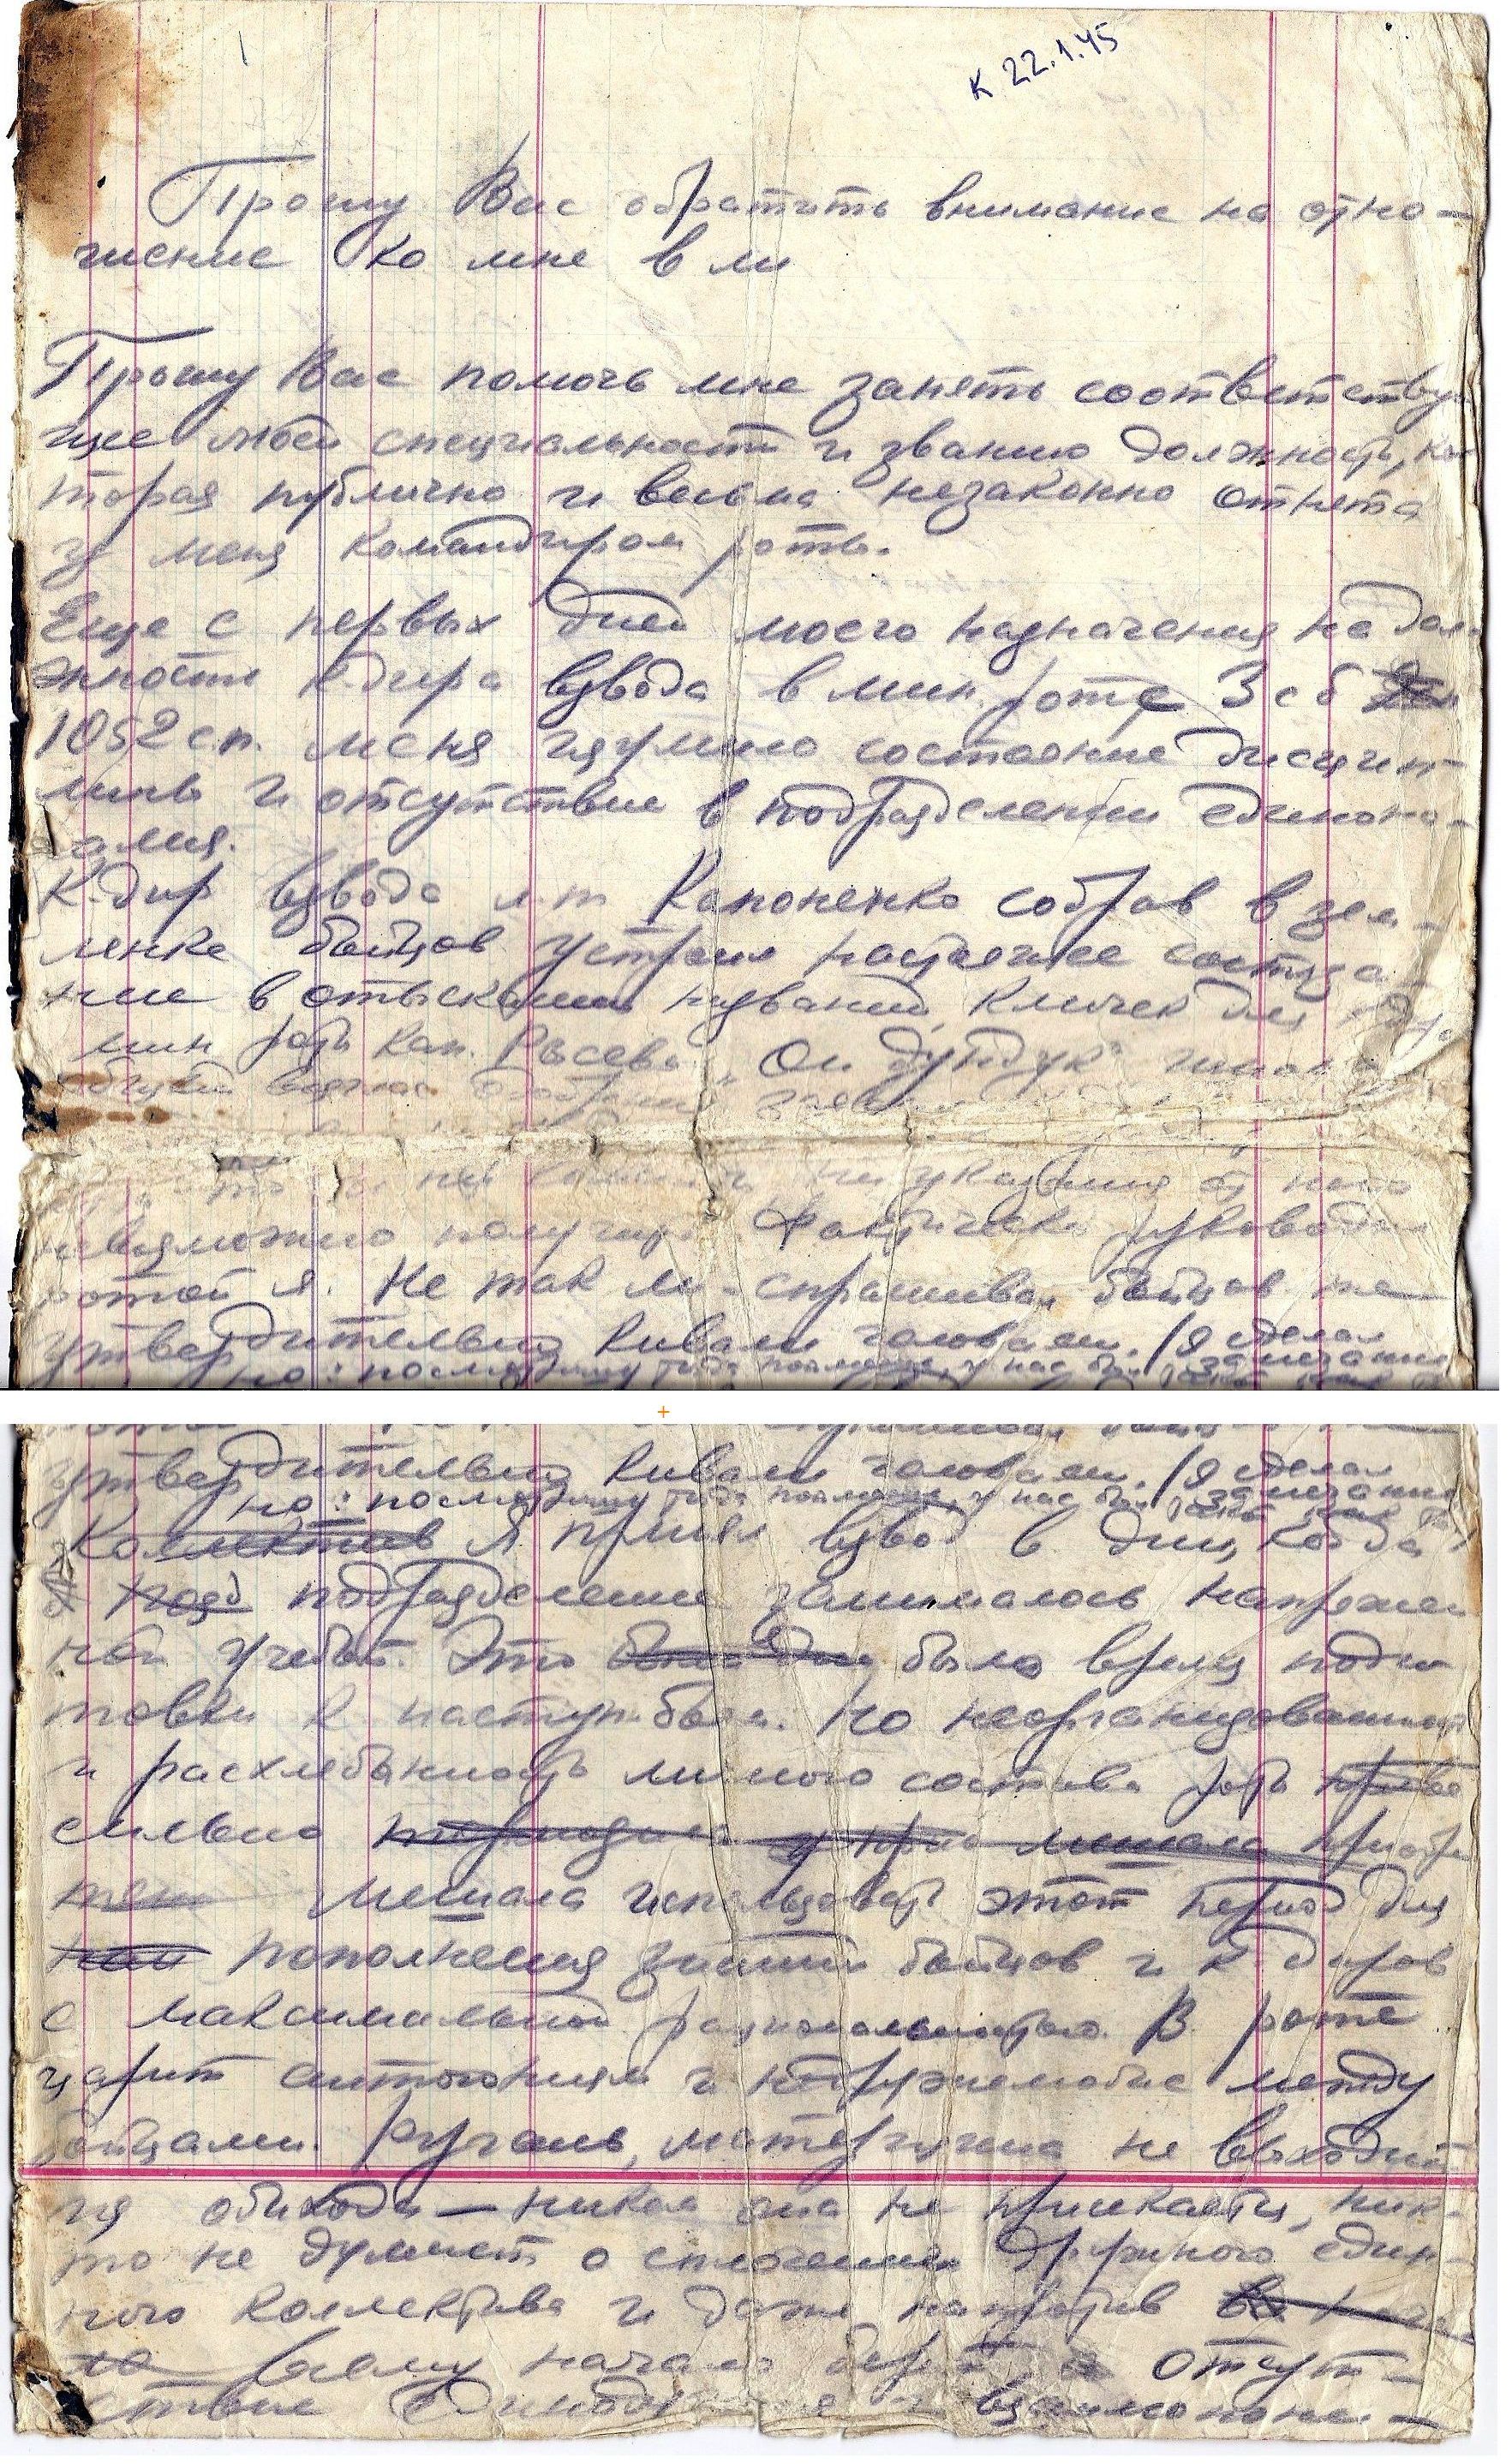 К 22.1.45
Прошу Вас обратить внимание на отно-
шение ко мне в ми
Прошу Вас помочь мне занять соответствую
щее моей специальности и званию должность, ко
торая публично и весьма незаконно отнята
у меня командиром роты.
Еще с первых дней моего назначения на дол
жность к-дира взвода в мин. роте 3 сб
1052 сп. меня изумило состояние дисцип
лины и отсутствие в подразделении единона-
чалия.
К-дир взвода л-т Капоненко собрав в зем-
лянке бойцов устроил настоящее состяза
ние в отыскании названий, кличек для
мин роты кап. Рысева. "Он дундук"
ни указания от него
невозможно получить. Фактически руковожу
ротой я. Не так ли - спрашивал бойцов. те
утвердительно кивали головами. (Я сделал
но: посмотрим у нас был замечание
утвердительно кивали головами. (Я сделал
но: посмотрим у нас был замечание
Коллектив Я принял взвод в дни, когда
подразделение занималось напряжен
ной учебой. Это было время подго
товки к наступ. боям. Но неорганизованность
и расхлябанность личного состава роты
сильно мешала
мешала использовать этот период для
пополнения знаний бойцов и к-диров
с максимальной рациональностью. В роте
царит антагонизм и недружелюбие между
бойцами. Ругань, матерщина не выходит
из обихода — никем она не пресекается, ник-
то не думает о сплочении дружного един-
ного коллектива и даже напротив
всему начало берет отсут-
ствие взаимопони-